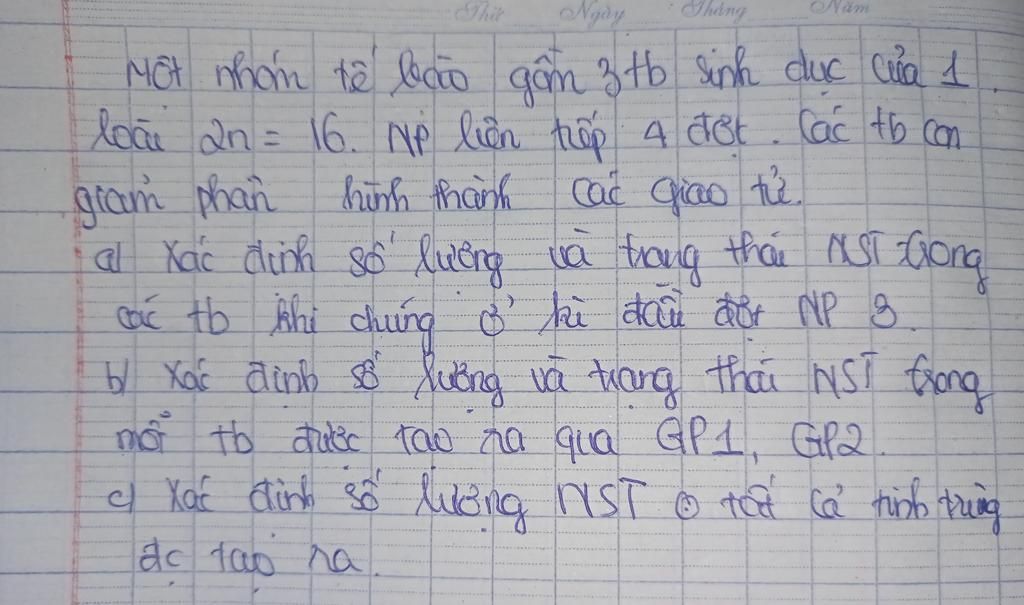 Thứ Ngày Tháng Năm
Một nhóm tế bào gồm 3 tb sinh dục của 1
loài 2n = 16. NP liên tiếp 4 đợt. Các tb con
giảm phân hình thành các giao tử.
a) Xác định số lượng và trạng thái NST trong
các tb khi chúng ở kì đầu đợt NP 3.
b) Xác định số lượng và trạng thái NST trong
mỗi tb được tạo ra qua GP1, GP2.
c) Xác định số lượng NST ở tất cả tinh trùng
đc tạo ra.